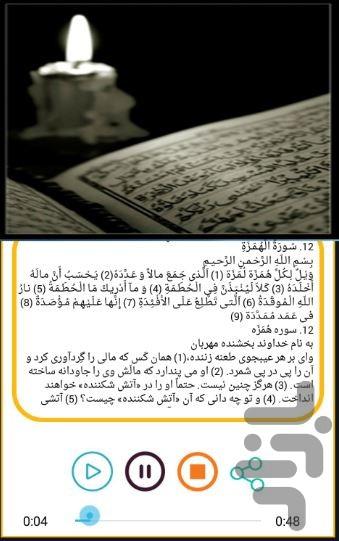 12. سُورَةُ الْهُمَزَةِ
بِسْمِ اللَّهِ الرَّحْمنِ الرَّحيـمِ
وَيْلٌ لِكُلِّ هُمَزَةٍ لُمَزَةٍ (1) الَّذي جَمَعَ مالاً وَ عَدَّدَهُ(2) يَحْسَبُ أَنَّ مالَهُ
أَخْلَدَهُ (3) كَلاَّ لَيُنْبَذَنَّ فِي الْحُطَمَةِ (4) وَ ما أَدْريكَ مَا الْحُطَمَةُ (5) نارُ
اللَّهِ الْمُوقَدَةُ (6) الَّتي تَطَّلِعُ عَلَى الْأَفْئِدَةِ (7) إِنَّها عَلَيْهِمْ مُؤْصَدَةٌ (8)
في عَمَدٍ مُمَدَّدَةٍ (9)
12. سوره هُمَزه
به نام خداوند بخشنده مهربان
وای بر هر عیبجوی طعنه زننده،(1) همان کَس که مالی را گِردآوری کرد و
آن را پی در پی شمرد. (2) او می پندارد که مالَش وی را جاودانه ساخته
است. (3) هرگز چنین نیست. حتماً او را در «آتش شکننده» خواهند
انداخت. (4) و تو چه دانی که آن «آتش شکننده» چیست؟ (5) آتشی
0:04
0:48